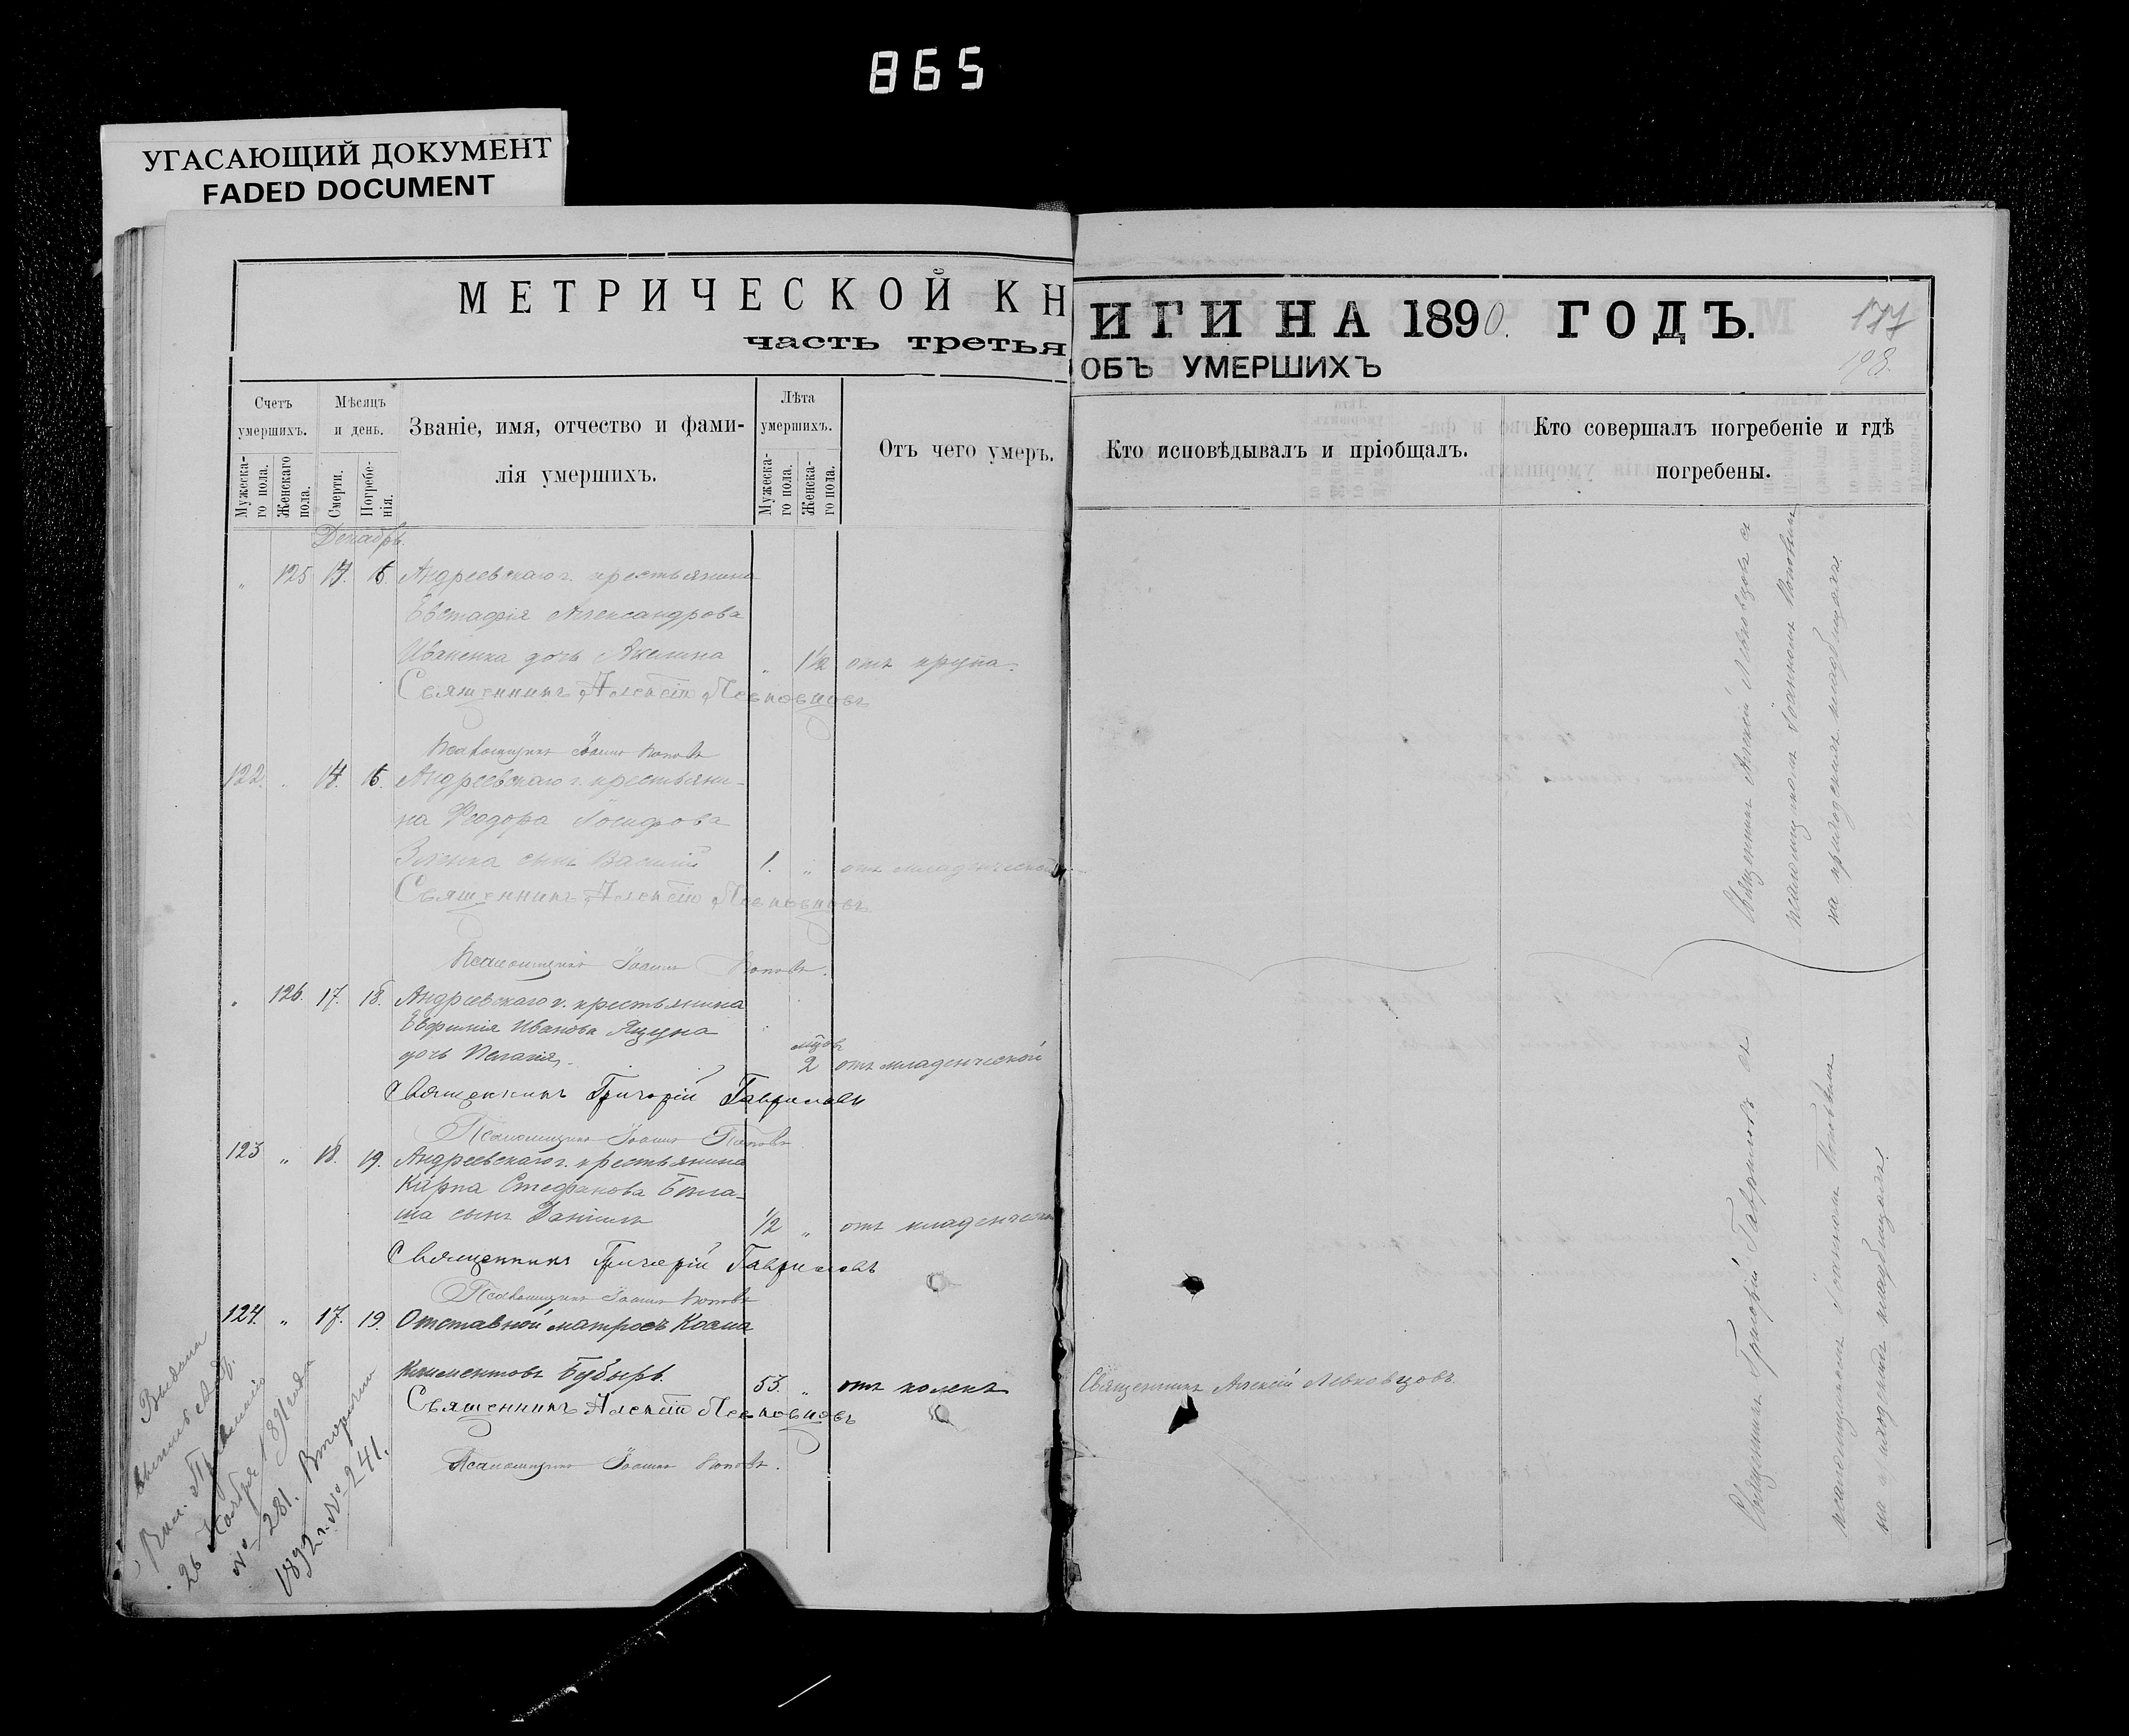 865
УГАСАЮЩИЙ ДОКУМЕНТ
FADED DOCUMENT
МЕТРИЧЕСКОЙ КН
часть третья
ИГИ НА 1890. ГОДЪ.
ОБЪ УМЕРШИХЪ
177
198.
Счетъ умершихъ.
Мужеска-го пола.
Женскаго пола.
Мѣсяцъ и день.
Смерти.
Погребе-нія.
Званіе, имя, отчество и фами-
лія умершихъ.
Лѣта умершихъ.
Мужеска-го пола.
Женска-го пола.
Отъ чего умеръ.
Кто исповѣдывалъ и пріобщалъ.
Кто совершалъ погребеніе и гдѣ
погребены.
Декабрь.
" 125 14. 16. Андреевскаго г. крестьянина
Евстафія Александрова
Иваненка дочь Акелина " 1½ отъ крупа.
Священникъ Алексій Левковцовъ
Псаломщикъ Іоаннъ Поповъ
122. " 14. 16. Андреевскаго г. крестьяни-
на Ѳеодора Іосифова
сынъ Василій 1. " отъ младенческой
Священникъ Алексій Левковцовъ
Псаломщикъ Іоаннъ Поповъ.
" 126. 17. 18. Андреевскаго г. крестьянина
Евфимія Иванова Яцуна
дочь Пелагія. мцовъ 2 отъ младенческой
Священникъ Григорій Гавриловъ
Псаломщикъ Іоаннъ Поповъ
123 " 18. 19. Андреевскаго г. крестьянина
Карпа Стефанова
сынъ Даніилъ ½ " отъ младенческой
Священникъ Григорій Гавриловъ
Псаломщикъ Іоаннъ Поповъ
124. " 17. 19. Отставной матросъ Косма
Климентовъ Бубырь. 53. " отъ колекъ
Священникъ Алексій Левковцовъ.
Священникъ Алексій Левковцовъ
Псаломщикъ Іоаннъ Поповъ.
Выдана
26 Ноября 1891 года
№ 281. Вторично
1892 г. № 241.
Священникъ Алексій Левковцовъ съ
псаломщикомъ Іоанномъ Поповымъ
на приходскомъ кладбищѣ.
Священникъ Григорій Гавриловъ съ
псаломщикомъ Іоанномъ Поповымъ
на приходскомъ кладбищѣ.